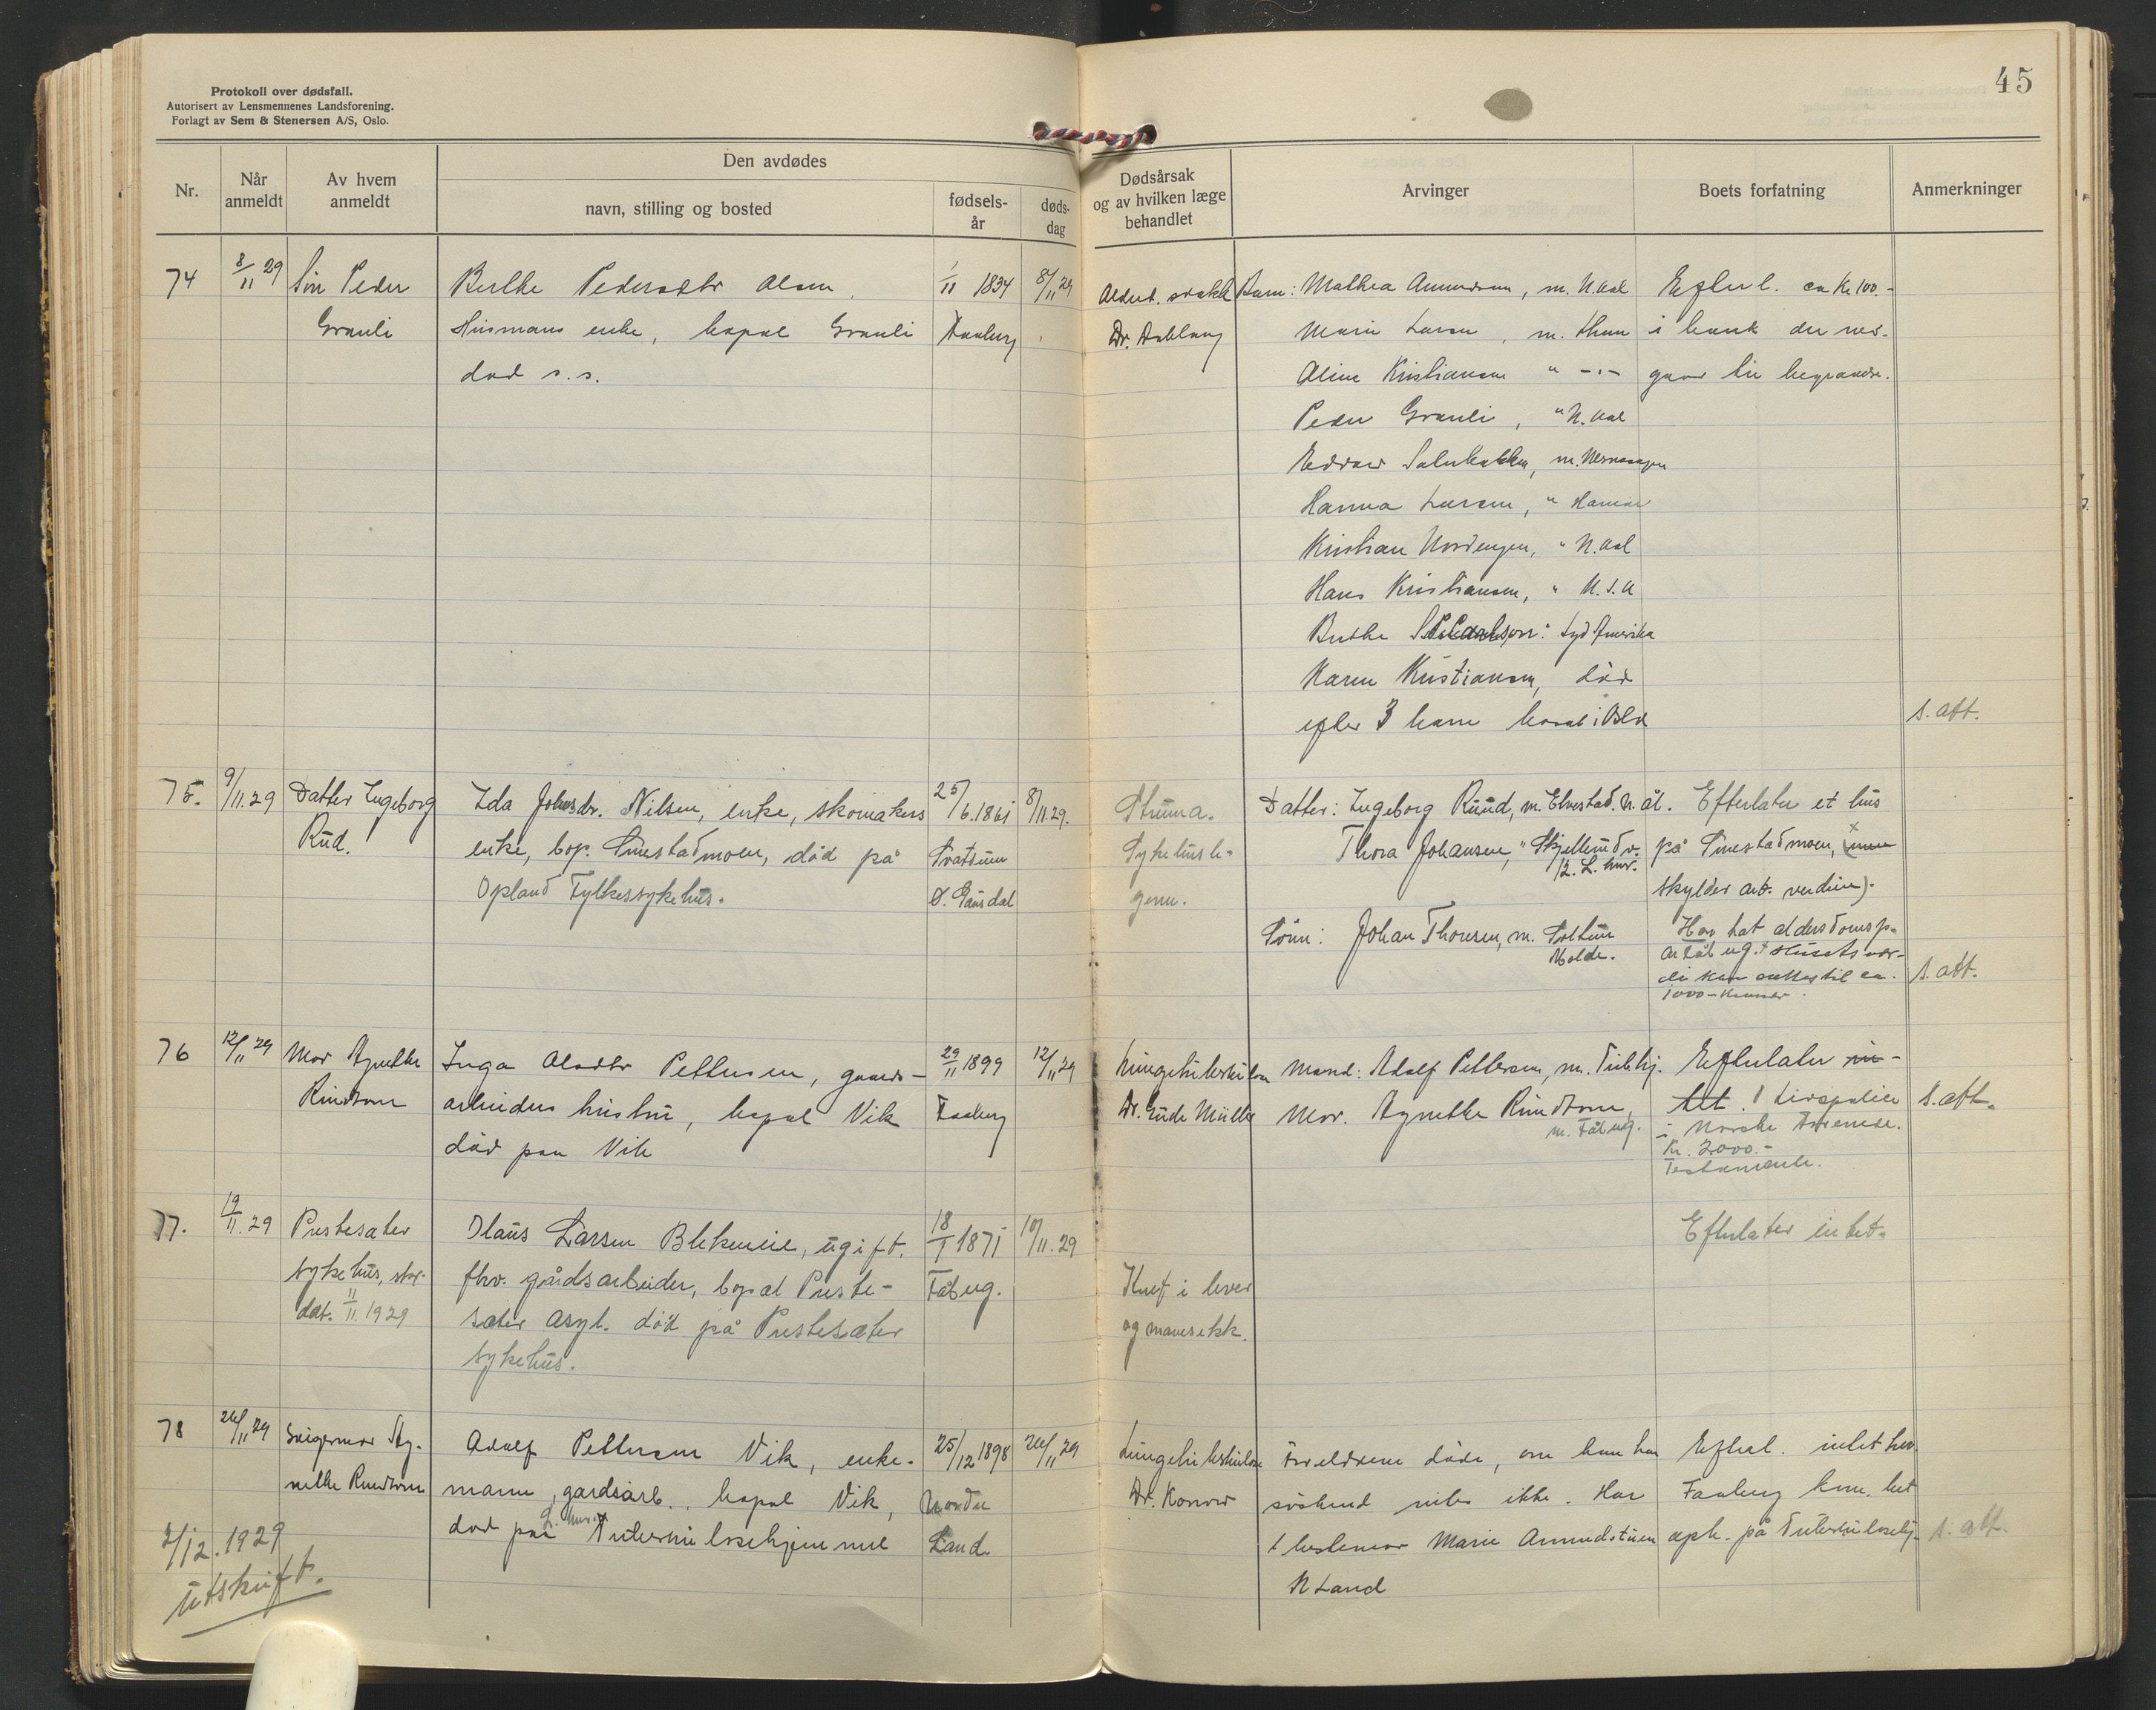 Protokoll over dødsfall.
Autorisert av Lensmennenes Landsforening.
Forlagt av Sem & Stenersen A/S, Oslo.
45
Nr.
Når anmeldt
Av hvem anmeldt
Den avdødes
navn, stilling og bosted
fødsels-år
døds-dag
Dødsårsak og av hvilken læge behandlet
Arvinger
Boets forfatning
Anmerkninger
74
8/11 29
Søn Peder
Granli
Berthe Pedersdtr Olsen
Husmans enke, bopæl Granli
død s.s.
1/11 1834
Faaberg
8/11 29
Alderd. svakh
Barn: Mathea Amundsen, m. N.Aal
Marie Larsen, m. Thun
Aline Kristiansen " -"-
Peder Granli, " N.Aal
Hanna Larsen, " Hamar
Kristian Nordengen, " N.Aal
Hans Kristiansen, " U.S.A
Berthe Syd Amerika
Karen Kristiansen, død
efter 3 barn bosat i Oslo
Efterl. ca Kr 100.-
i bank der med-
gaar til begravelse.
s. att.
75.
9/11.29
Datter Ingeborg
Rud.
Ida Johnsdr. Nilsen, enke, skomakers
enke, bop. Smestadmoen, død på
Opland Fylkessykehus.
25/6.1861
Svatsum
Ø. Gausdal
8/11.29.
Struma.
Sykehusle-
gene.
Datter: Ingeborg Ruud, m. Elvestad. N. ål.
Thora Johansen, " Skjellerudv.
12. L. hmr.
Sønn: Johan Thonsen, m.
Molde.
Efterlater et hus
på Smestadmoen, (men
skylder art. verdien).
Har hat alderdomsp.
av Fåberg. Husets vær-
di kan sættes til ca.
1000 - kroner.
s. att.
76
12/11 29
Mor Agnethe
Rundtom
Inga Olsdtr Pettersen, gaards-
arbeiders hustru, bopæl Vik
død paa Vik
29/11 1899
Faaberg
12/11 29
Lungetuberkulose
Dr. Gude Müller
Mand: Adolf Pettersen, m. Tub.hj.
Mor. Agnethe Rundtom,
m. Fåberg.
Efterlater in-
tet. 1 Livspolice
i Norske Forenede.
Kr. 2000.-
Testamente.
s. att.
77.
19/11.29
Prestesæter
sykehus, skr.
dat. 11/11.1929
Olaus Larsen Blekeneie, ugift.
fhv. gårdsarbeider, bopæl Preste-
sæter asyl. død på Prestesæter
sykehus.
18/1 1871
Fåberg.
10/11.29
Kreft i lever
og mavesekk.
Efterlater intet.
78
26/11 29
Svigermor Ag-
nethe Rundtom
Adolf Pettersen Vik, enke-
mann, gardsarb., bopæl Vik,
død på L. hmr. Tuberkulosehjemmet
25/12 1898
Nordre
Land
26/11 29
Lungetuberkulose
Dr. Konow
Foreldrene døde, om han har
søskend vites ikke. Har
1 bestemor Marie Amundstuen
N Land
Efterl. intet hvor.
Faaberg kom. bet
oph. på Tuberkulosehj.
s. att.
2/12.1929
Utskrift.